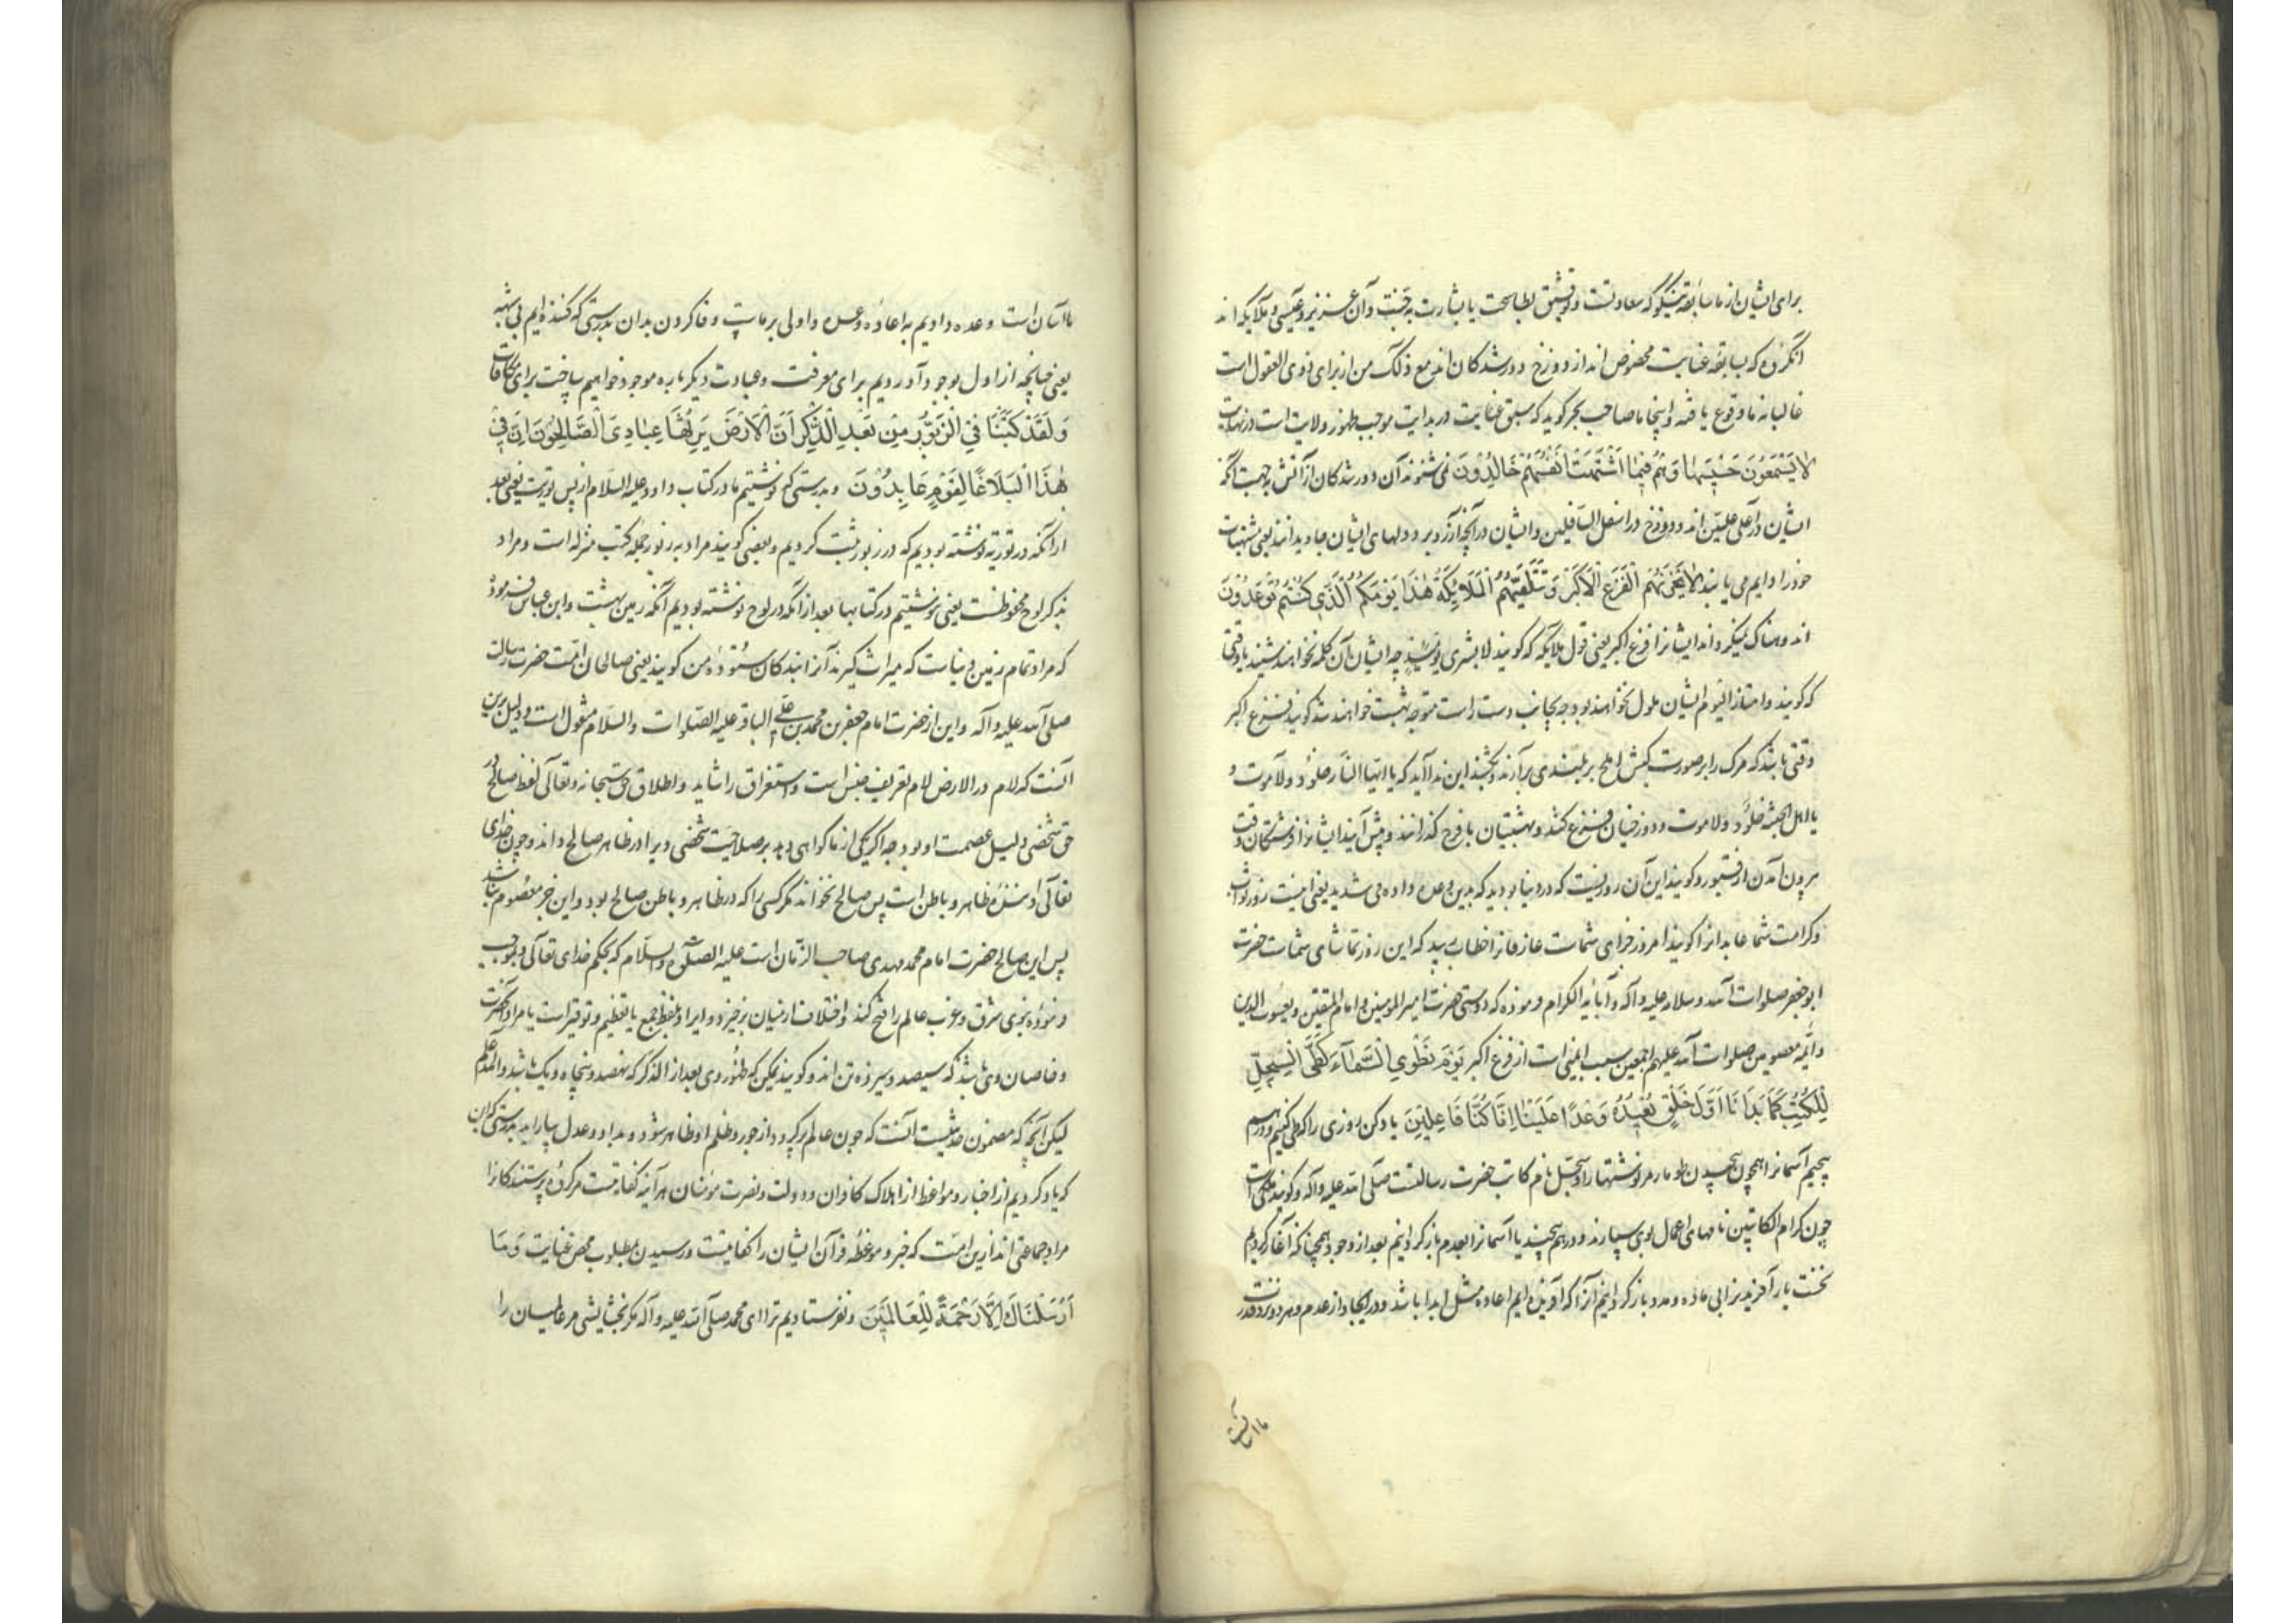 برای ایشان از ما سابقه نیکو که سعادتست و توفیق بطاعت یا بشارت به جنت و آن عزیز و عیسی و ملایکه اند
آنگروه که بسابقه عنایت مخصوص اند از دوزخ دور شدکان اند مع ذلک من از برای ذوی العقول است
غالبا نه ما وقوع یافته و اینجا ما صاحب بحر کوید که سبق عنایت در بدایت موجب ظهور ولایت است در نهایت
لَا يَسْمَعُونَ حَسِيسَهَا وَهُمْ فِيمَا اشْتَهَتْ أَنْفُسُهُمْ خَالِدُونَ نمی شنوند آن دور شدکان از آتش به جهت آنکه
ایشان در اعلی علیین اند و دوزخ در اسفل السافلین و ایشان در آنچه آرزو برد دلهای ایشان جاویدانند یعنی مشتهیات
خود را دایم می یابند لَا يَحْزُنُهُمُ الْفَزَعُ الْأَكْبَرُ وَتَتَلَقَّيهُمُ الْمَلَائِكَةُ هٰذَا يَوْمُكُمُ الَّذِي كُنْتُمْ تُوعَدُونَ
اندوهناک نمیکرداند ایشانرا فزع اکبر یعنی قول ملایکه که کویند لا بشری یومئذ چه ایشان آن کلمه نخواهند شنید یا وقتی
که کویند وامتازوا الیوم ایشان ملول نخواهند بود چه بجانب دست راست متوجه بهشت خواهند شد کویند فزع اکبر
وقتی باشد که مرک را بر صورت کبش املح بر بلندی برآرند و بکشند این ندا آید که یا اهل النار خلود و لا موت و
یا اهل الجنة خلود و لا موت و دوزخیان فزع کنند و بهشتیان با فرح کذرانند و پیش آیند ایشانرا فرشتکان وقت
بیرون آمدن از قبور و کویند این آن روزیست که در دنیا بودید که بدین وعده داده می شدید یعنی امنیت روز ثواب
و کرامت شما عابدانرا کویند امروز جزای شماست عارفانرا خطاب رسد که این روز تماشای شماست حضرت
ابو جعفر صلوات الله و سلامه علیه و آله و آبائه الکرام فرموده که دوستی حضرت امیر المومنین و امام المتقین و یعسوب الدین
و ائمه معصومین صلوات الله علیهم اجمعین سبب ایمنی است از فزع اکبر يَوْمَ نَطْوِي السَّمَاءَ كَطَيِّ السِّجِلِّ
لِلْكُتُبِ كَمَا بَدَأْنَا أَوَّلَ خَلْقٍ نُعِيدُهُ وَعْدًا عَلَيْنَا إِنَّا كُنَّا فَاعِلِينَ یاد کن روزی را که طی کنیم و درهم
پیچیم آسمانرا همچون پیچیدن طومار مر نوشتها را و سجل نام کاتب حضرت رسالتست صلی الله علیه و آله و کویند ملکی است
چون کرام الکاتبین نامهای اعمال بوی سپارند و درهم پیچند یا آسمانرا بعدم بازکردانیم بعد از وجود همچنانکه آغاز کردیم
نخست بار آفریدنرا بی ماده و مدد بازکردانیم آنرا که آفریده ایم اعاده مثل ابدا باشد در ایجاد از عدم و هر دو برد قدرت
ما آسانست
ما آسان است وعده دادیم به اعاده وعده و اولی بر ماست وفا کردن بدان بدرستی که کننده ایم بی شبه
یعنی چنانچه از اول بوجود آوردیم برای معرفت و عبادت دیکر باره موجود خواهیم ساخت برای مکافات
وَلَقَدْ كَتَبْنَا فِي الزَّبُورِ مِنْ بَعْدِ الذِّكْرِ أَنَّ الْأَرْضَ يَرِثُهَا عِبَادِيَ الصَّالِحُونَ إِنَّ فِي
هٰذَا لَبَلَاغًا لِقَوْمٍ عَابِدِينَ و بدرستی که نوشتیم ما در کتاب داود علیه السلام از پس توریت یعنی بعد
ازآنکه در توریة نوشته بودیم که در زبور ثبت کردیم و بعضی کویند مراد به زبور جمله کتب منزله است و مراد
بذکر لوح محفوظست یعنی نوشتیم در کتابها بعد ازآنکه در لوح نوشته بودیم آنکه زمین بهشت و ابن عباس فرموده
که مراد تمام زمین دنیاست که میراث کیرند آنرا بندکان ستوده من کویند یعنی صالحان امت حضرت رسالت
صلی الله علیه و آله و این از حضرت امام جعفر بن محمد بن علی الباقر علیه الصلوات و السلام منقول است و دلیل برین
آنست که لام در الارض لام تعریف جنس است و استغراق را شاید و اطلاق حق سبحانه و تعالی لفظ صالح در
حق شخصی دلیل عصمت او بود چه اکر یکی از ما کواهی دهد بر صلاحیت شخصی ویرا در ظاهر صالح داند و چون خدای
تعالی داننده ظاهر و باطن است پس صالح نخواند مکر کسی را که در ظاهر و باطن صالح بود و این جز معصوم نباشد
پس این صالح حضرت امام محمد مهدی صاحب الزمان است علیه الصلوة والسلام که بحکم خدای تعالی و بموجب
فرموده نبوی شرق و غرب عالم را فتح کند و اختلاف از میان برخیزد و ایراد بلفظ جمع یا تعظیم و توقیر است یا مراد آنحضرت
و خاصان وی باشد که سیصد و سیزده تن اند و کویند ممکن که ظهور وی بعد از الذکر که نهصد و پنجاه و یک باشد والله اعلم
لیکن آنچه که مضمون حدیثست آنست که چون عالم پر کردد از جور و ظلم او ظاهر شود و بداد و عدل بیاراید بدرستی که این
که یاد کردیم از اخبار و مواعظ از اهلاک کافران و دولت و نصرت مومنان هر آینه کفایتست مر کروه پرستندکانرا
مراد جماعتی اند ازین امت که خبر و موعظه قرآن ایشان را کفایتست در رسیدن بمطلوب محض عنایت وَمَا
أَرْسَلْنَاكَ إِلَّا رَحْمَةً لِلْعَالَمِينَ و نفرستادیم ترا ای محمد صلی الله علیه و آله مکر بخشایشی مر عالمیان را